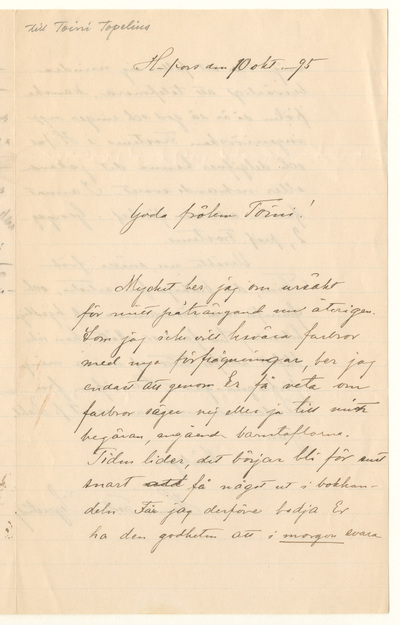 till Toini Topelius
H-fors den 10 okt. -95
Goda fröken Toini!
Mycket ber jag om ursäkt
för mitt påträngand nu återigen.
Som jag icke vill besvära farbror
med nya förfrågningar, ber jag
endast att genom Er få veta om
farbror säger nej eller ja till min
begäran, angående barntaflorna.
Tiden lider, det börjar bli för sent
snart att få något ut i bokhan-
deln. Får jag derföre bedja Er
ha den godheten att i morgon svara